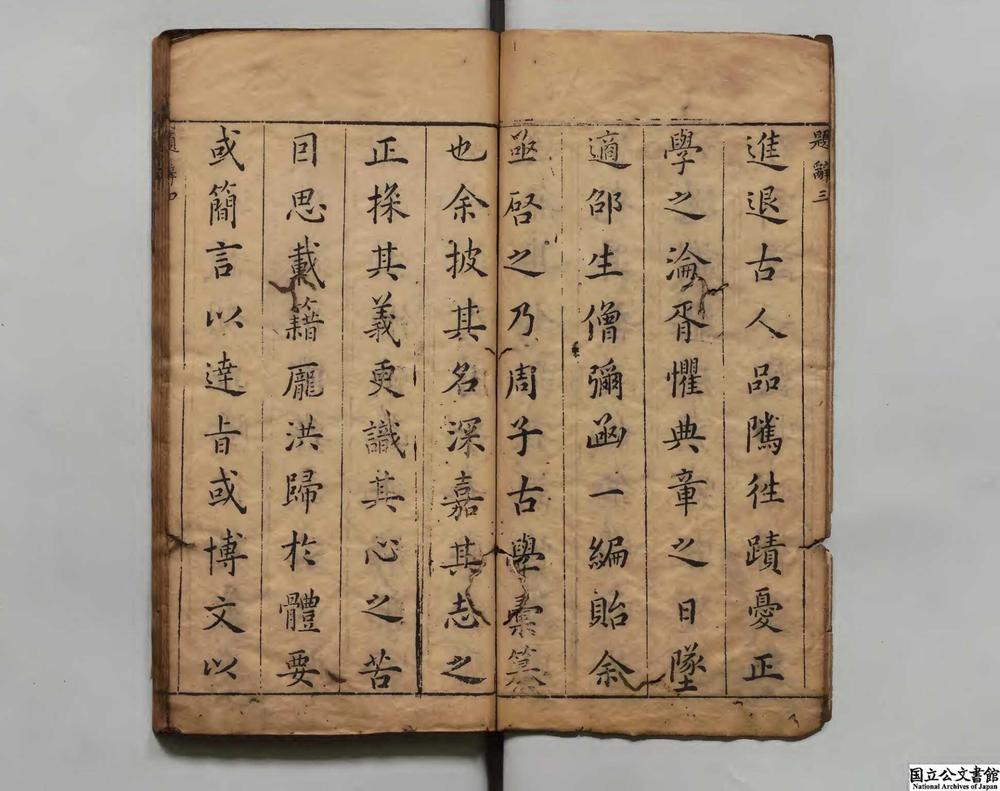 題辭三
進退古人品騭徃蹟憂正
學之淪胥懼典章之日墜
適邵生僧彌函一編貽余
亟啓之乃周子古學彚纂
也余披其名深嘉其志之
正採其義更識其心之苦
囙思載籍龎洪歸於體要
或簡言以達旨或博文以
題辭四
国立公文書館
National Archives of Japan